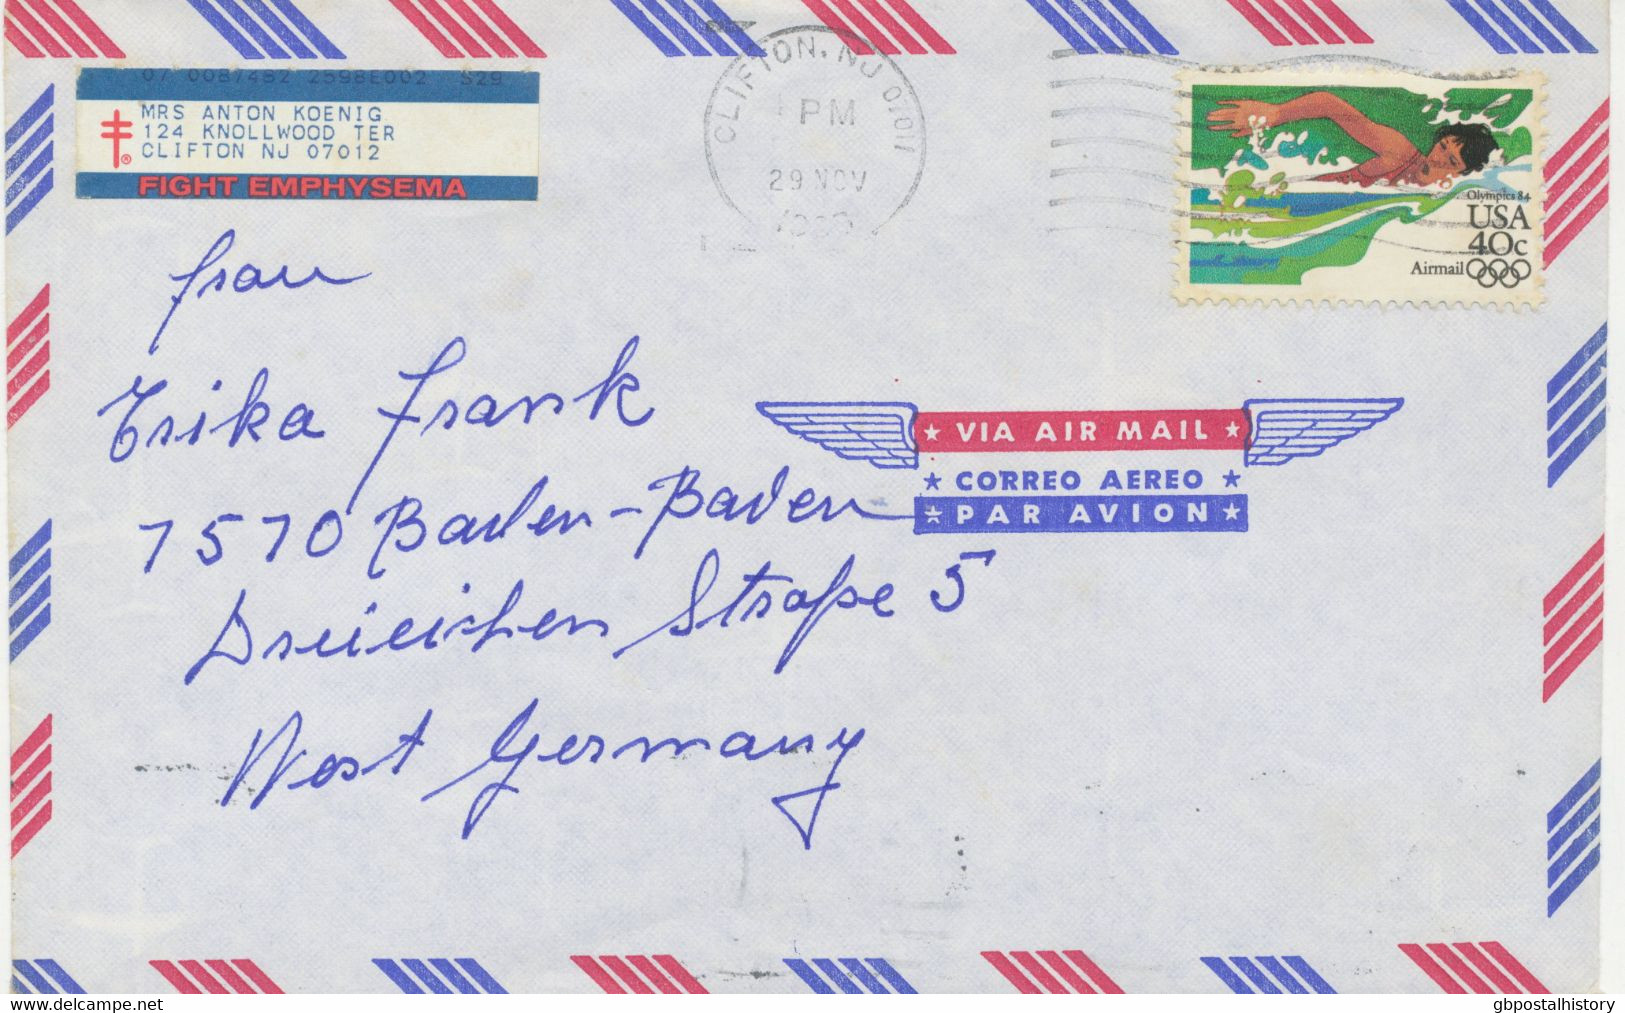 07 0087482 2598E002 S29
MRS ANTON KOENIG
124 KNOLLWOOD TER
CLIFTON NJ 07012
FIGHT EMPHYSEMA
CLIFTON, NJ 07011
PM
29 NOV
Olympics 84
USA
40c
Airmail
Frau
Erika Frank
7570 Baden-Baden
Dreieichen Straße 5
West Germany
★ VIA AIR MAIL ★
★ CORREO AEREO ★
★ PAR AVION ★
gbpostalhistory